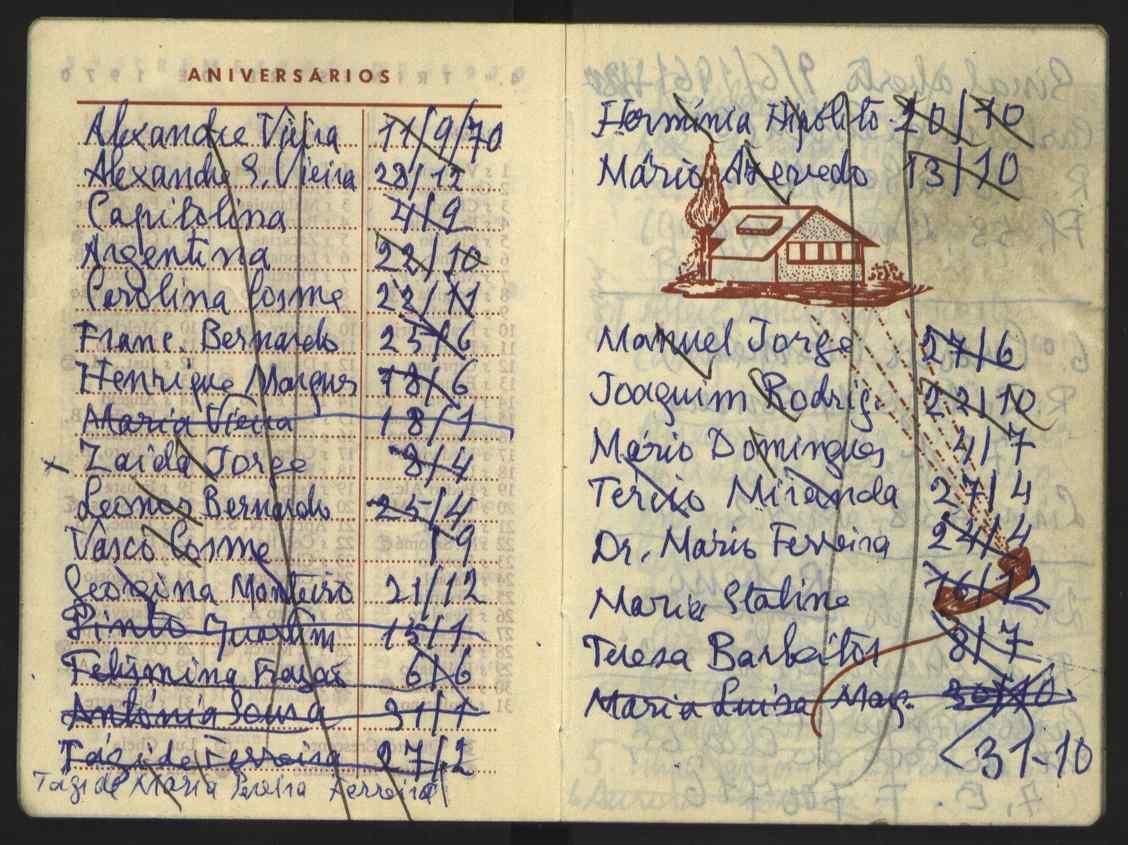 ANIVERSÁRIOS
Alexandre Vieira 11/9/70
Alexandre S. Vieira 28/12
Capitolina 4/9
Argentina 22/10
Carolina Cosme 22/11
Franc. Bernardo 25/6
Henrique Marques 18/6
Maria Vieira 18/1
x Zaida Jorge 8/4
Leonor Bernardo 25/4
Vasco Cosme 1/9
Georgina Monteiro 21/12
Pinto Quartim 15/1
Felismina Fragas 6/6
Antónia Sousa 31/1
Tágide Ferreira 27/2
Tágide Maria Pereira Ferreira
Hermínia Hipólito 20/10
Mário Azevedo 13/10
Manuel Jorge 27/6
Joaquim Rodrig. 22/10
Mário Domingues 4/7
Tércio Miranda 27/4
Dr. Mário Ferreira 24/4
Maria Staline 16/12
Teresa Barbeitos 8/7
Maria Luisa Mar. 30/10.
31-10